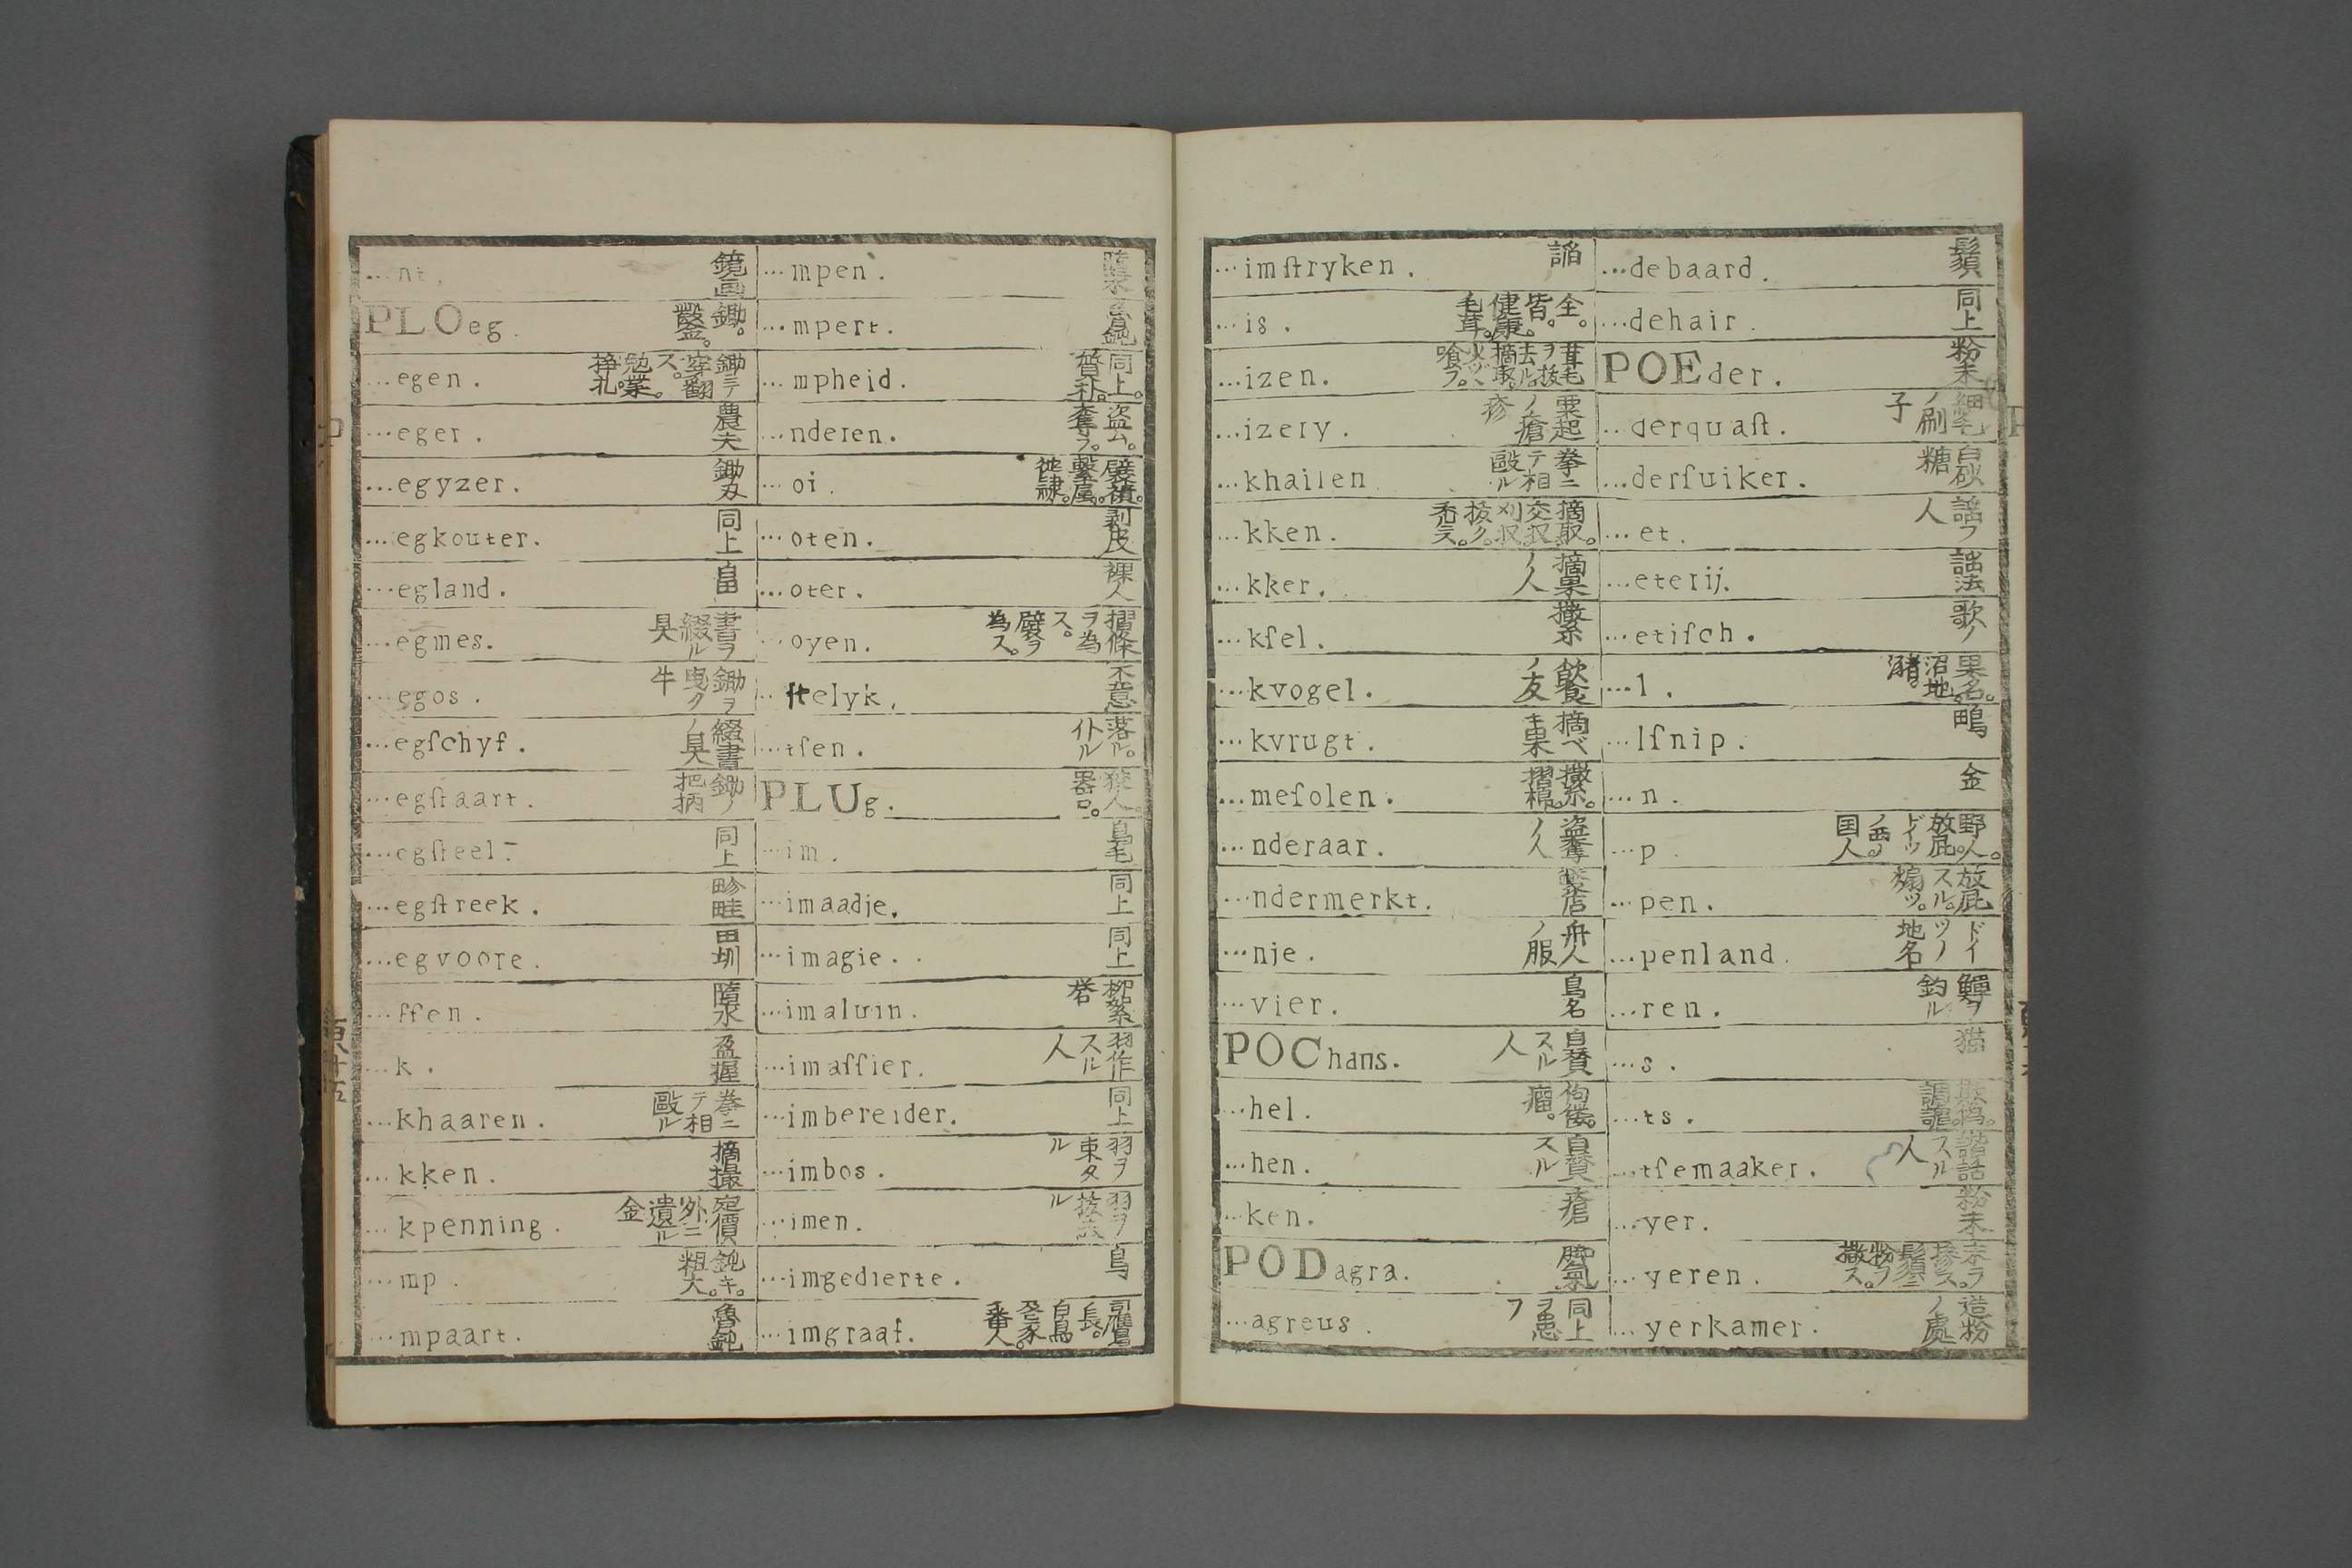 …nt. 鏡画
PLOeg. 鋤。鑿。
…egen. 鋤ニテ穿翻ス。勉業。挣扎
…eger. 農夫
…egyzer. 鋤刄
…egkouter. 同上
…egland. 畠
…egmes. 書ヲ綴ル具
…egos. 鋤ヲ曳ク牛
…egſchyf. 綴書ノ具
…egſtaart. 鋤ノ把柄
…egſteel. 同上
…egſtreek. 畛畦
…egvoore. 田圳
…ffen. 隋水
…k. 盈握
…khaaren. 拳ニテ相毆ル
…kken. 摘撮
…kpenning. 定價外ニ遺ル金
…mp. 鈍キ。粗大。
…mpaart. 魯鈍
…mpen.
…mpert. 魯鈍
…mpheid. 同上。質朴。
…nderen. 盗ム。奪フ。
…oi. 襞積。繫屬。徙隷。
…oten. 剥皮
…oter. 裸人
…oyen. 摺條ヲ為ス。襞ヲ為ス。
…ſtelyk. 不意
…tſen. 落ル。仆ル
PLUg. 人。器口。
…im. 鳥毛
…imaadje. 同上
…imagie. 同上
…imaluin. 柳絮
…imaſſier. 羽作スル人
…imbereider. 同上
…imbos. 羽ヲ束タル
…imen. 羽ヲ抜ル
…imgedierte. 鳥
…imgraaf. 長。白鳥
…imſtryken. 謟
…is. 全。皆。健康。毛茸。
…izen. 茸毛ヲ抜去ル。摘取。喰フ。
…izery. 粟起ノ瘡疹
…khailen 拳ニテ相毆ル
…kken. 摘取。交収。刈収。抜ク。禿ラス。
…kker. 摘果ノ人
…kſel. 撒糸
…kvogel. 飲食ノ友
…kvrugt. 摘ベキ果
…meſolen. 撒糸。摺榥。
…nderaar. 盗奪ノ人
…ndermerkt. 店
…nje. 舟人ノ服
…vier. 鳥名
POChans. 自賛スル人
…hel. 佝僂。瘤。
…hen. 自賛スル
…ken. 瘡
PODagra. 脚氣
…agreus. 同上ヲ患フ
…debaard. 鬚
…dehair. 同上
POEder. 粉末
…derquaſt. 細毛ノ刷子
…derſuiker. 白砂糖
…et. 謡フ人
…eterij. 詩法
…etiſch. 歌ノ
…l. 果名。沼地。瀦。
…lſnip. 鴫
…n. 金
…p. 野人。放屁。ドイツノ西ノ国人
…pen. 放屁スル。煽ツ。
…penland. ドイツノ地名
…ren. 鱓ヲ釣ル
…s. 猫
…ts. 欺偽。調謔。
…tſemaaker. 諧話スル人
…yer. 粉末
…yeren. 末ヲ摻ス。鬚ニ粉ヲ撒ス。
…yerkamer. 造粉ノ處